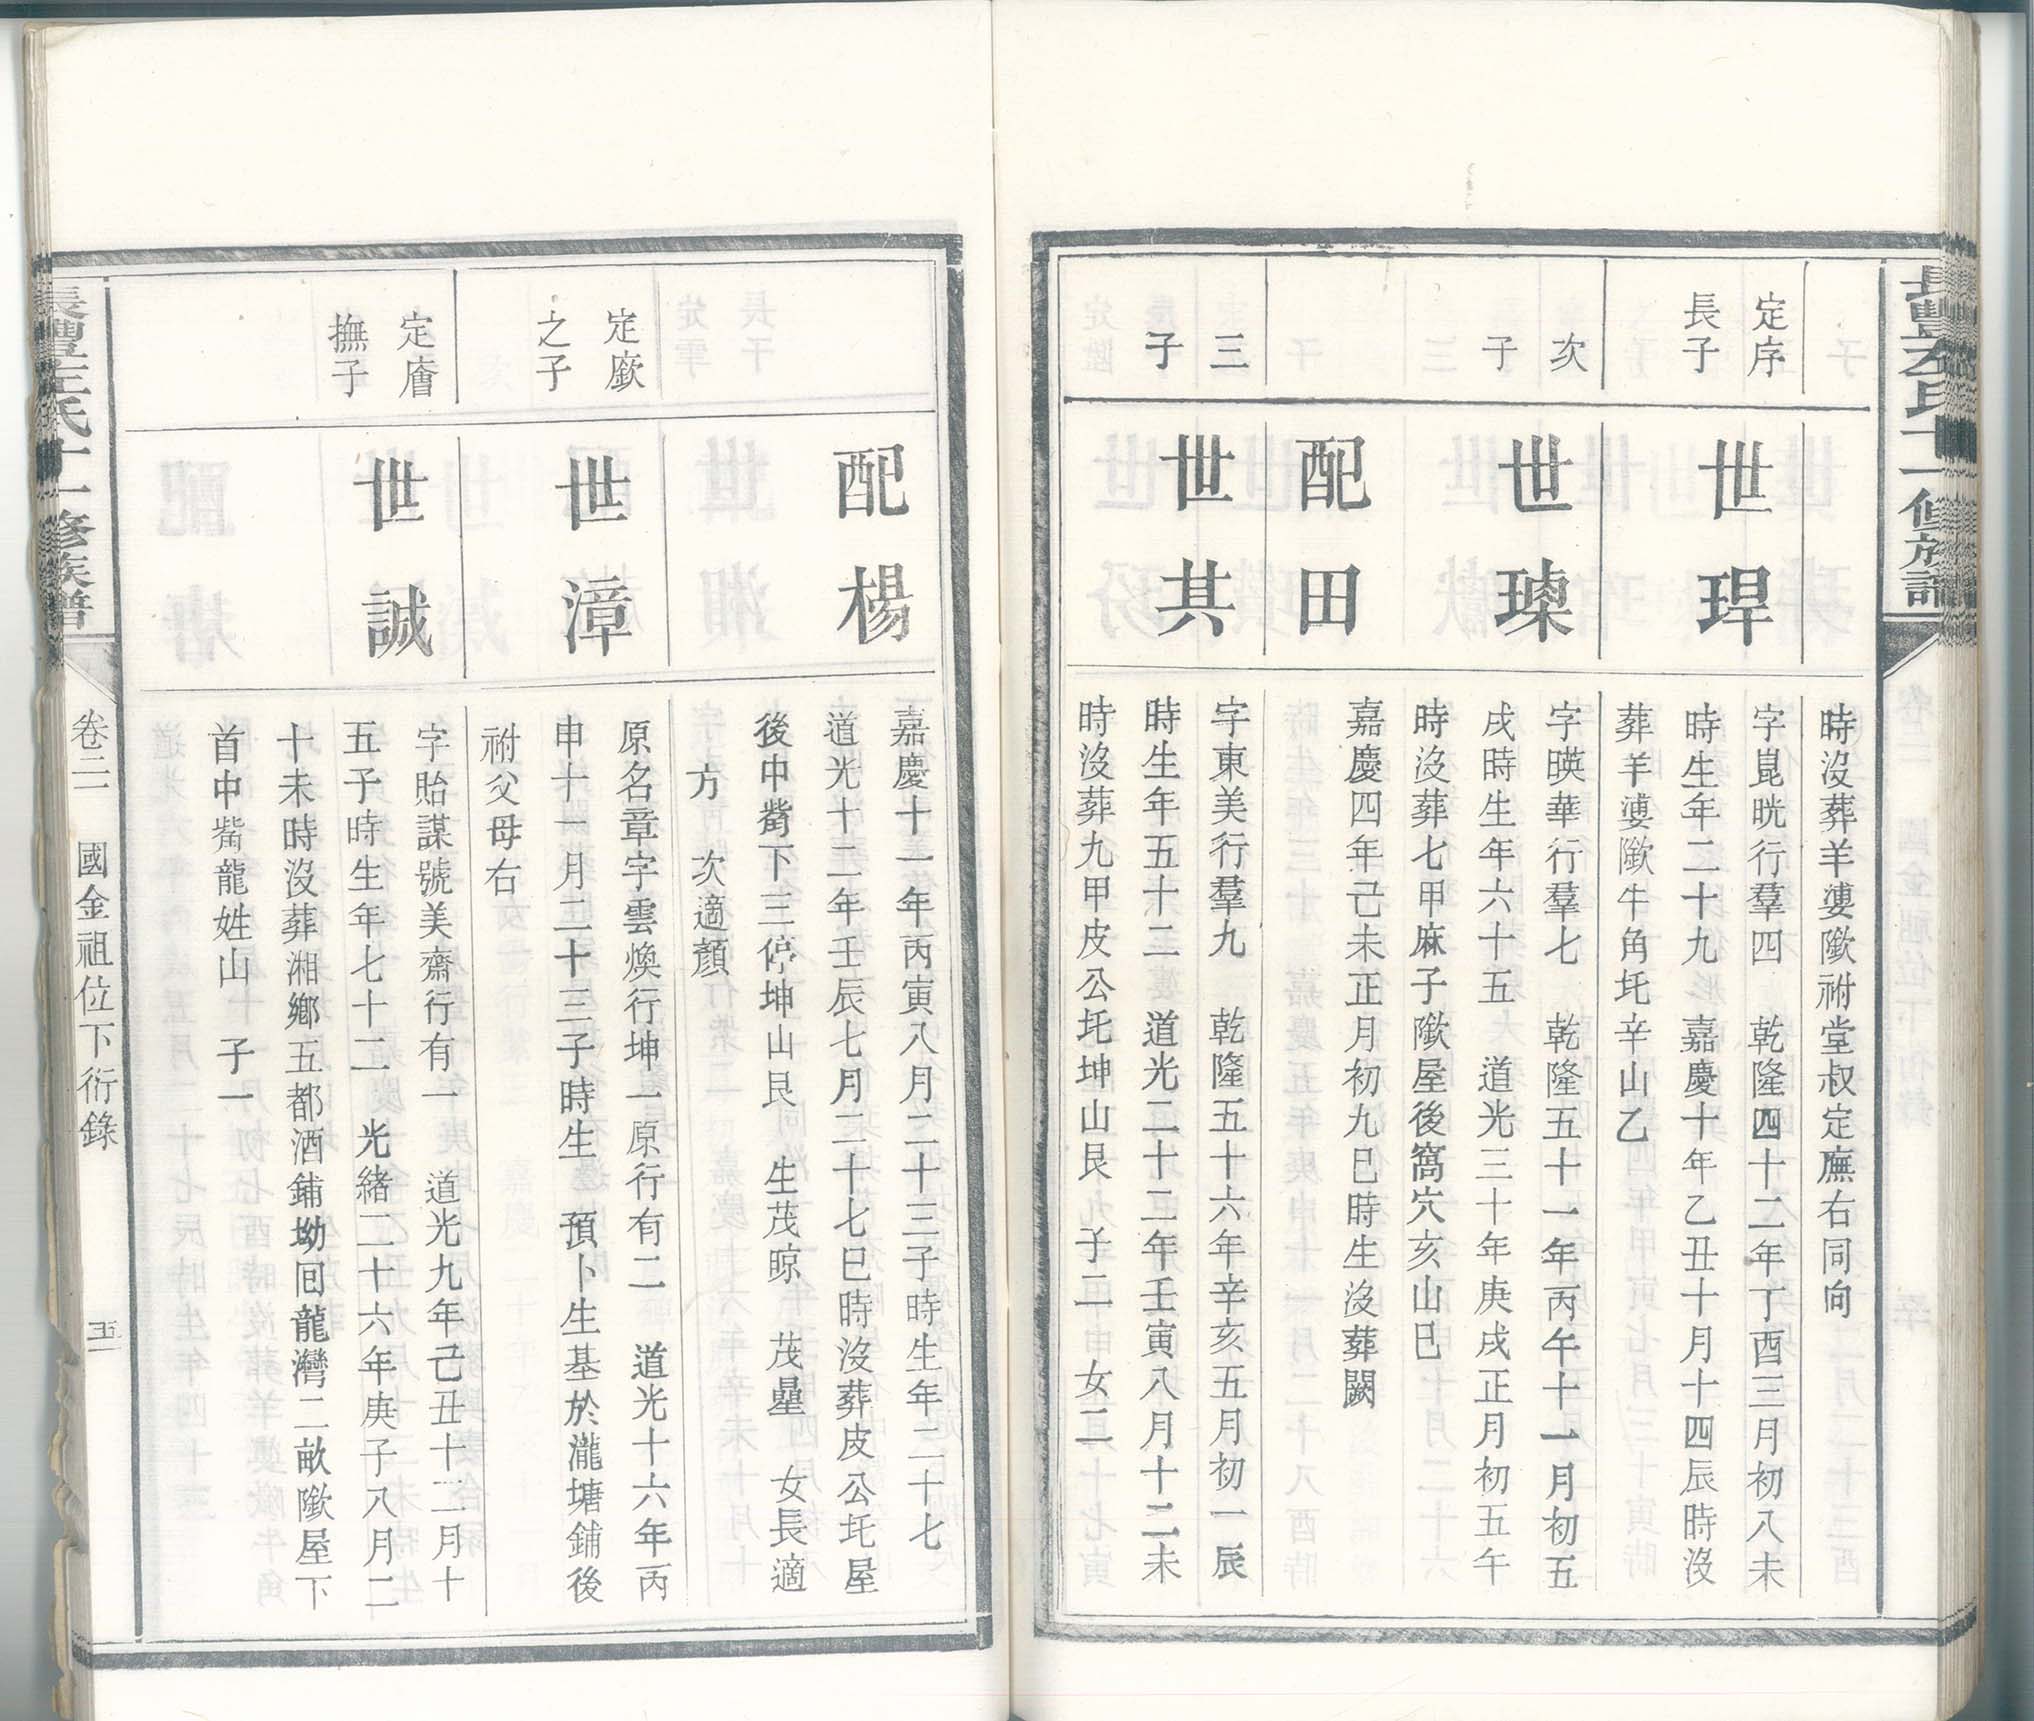 長豐左氏十一修族譜
時沒葬羊㜢隞祔堂叔定廡右同向
定序
長子
世琞
字崑晄行羣四　乾隆四十二年丁酉三月初八未
時生年二十九　嘉慶十年乙丑十月十四辰時沒
葬羊㜢隞牛角坉辛山乙
次
子
世璖
字暎華行羣七　乾隆五十一年丙午十一月初五
戌時生年六十五　道光三十年庚戌正月初五午
時沒葬七甲麻子隞屋後窩穴亥山巳
配田
嘉慶四年己未正月初九巳時生沒葬闕
三
子
世其
字東美行羣九　乾隆五十六年辛亥五月初一辰
時生年五十二　道光二十二年壬寅八月十二未
時沒葬九甲皮公坉坤山艮　子二　女二
配楊
嘉慶十一年丙寅八月二十三子時生年二十七
道光十二年壬辰七月二十七巳時沒葬皮公坉屋
後中觜下三停坤山艮　生茂晾　茂壘　女長適
方　次適顏
定廞
之子
世漳
原名章字雲煥行坤一原行有二　道光十六年丙
申十一月二十三子時生　預卜生基於瀧塘鋪後
祔父母右
定廥
撫子
世誠
字貽謀號美齋行有一　道光九年己丑十二月十
五子時生年七十二　光緒二十六年庚子八月二
十未時沒葬湘鄉五都酒鋪坳囘龍灣二畝隞屋下
首中觜龍姓山　子一
長豐左氏十一修族譜
卷二　國金祖位下衍錄
五一